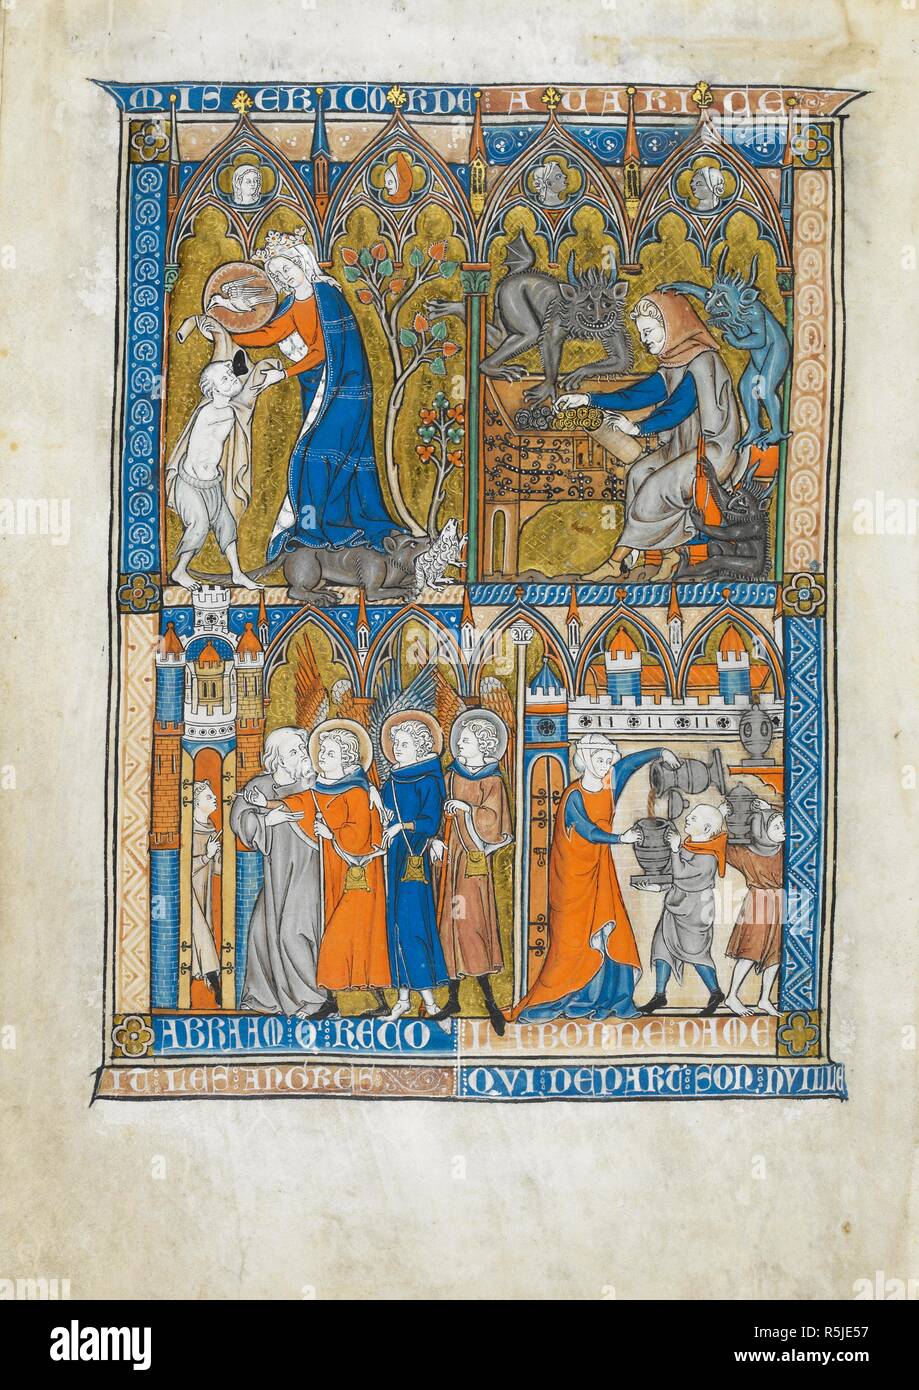 MISERICORDE : AVARICE
ABRAAM : Q' : RECO
IT : LES : ANGRES
LA : BONNE : DAME
QVI : DEPART : SON : HVILLE
alamy
Image ID: R5JE57
www.alamy.com